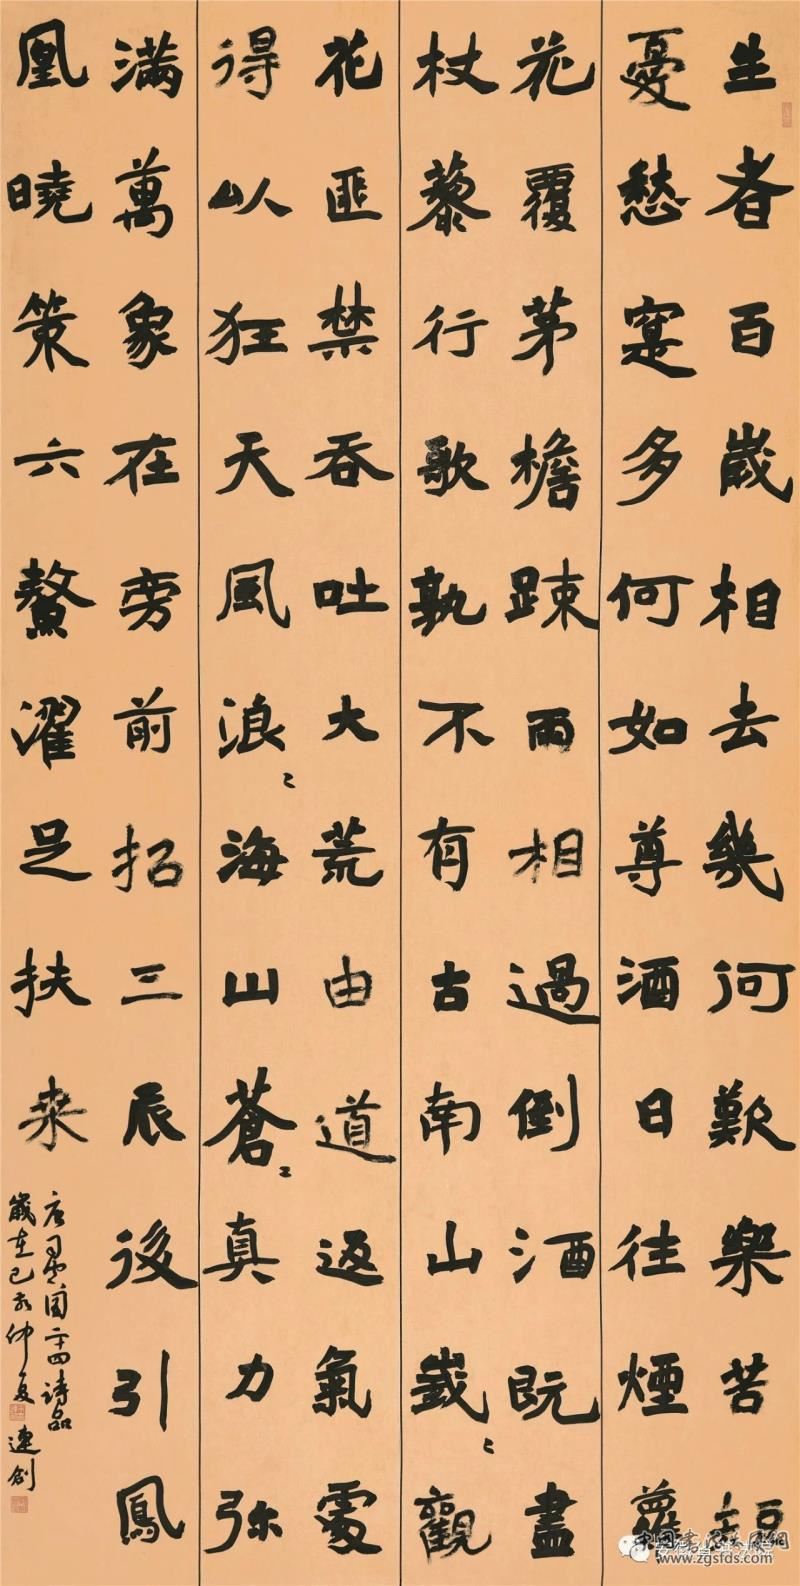 生者百歲相去幾何歡樂苦短
憂愁寔多何如尊酒日往煙蘿
花覆茅檐疎雨相過倒酒既盡
杖藜行歌孰不有古南山峩〻觀
花匪禁吞吐大荒由道返氣處
得以狂天風浪〻海山蒼〻真力弥
滿萬象在旁前招三辰後引鳳
凰曉策六鰲濯足扶桒
唐司空圖二十四詩品
歲在己亥仲夏連創
www.zgsfds.com